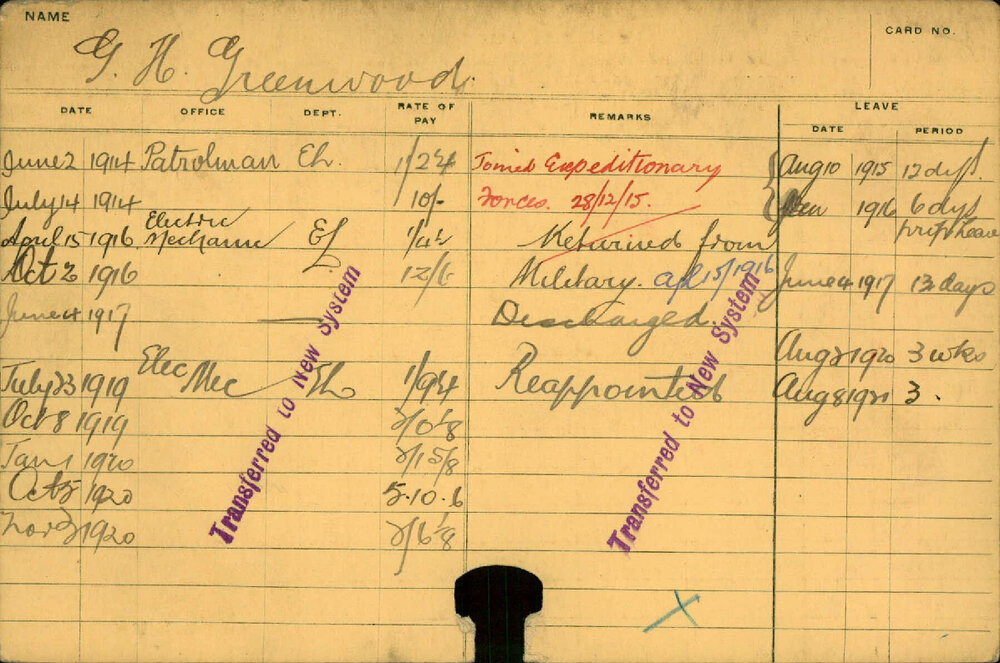 NAME
CARD NO.
G. H. Greenwood.
DATE OFFICE DEPT. RATE OF PAY REMARKS LEAVE
DATE PERIOD
June 2 1914 Patrolman El. Joined Expeditionary Aug 10 1915 12 dys.
July 14 1914 10/- Forces. 28/12/15. 1916 6 dys
April 15 1916 Electric Mechanic El Returned from
Oct 2 1916 12/6 Military. Apl 15/1916 June 4 1917 12 days
June 4 1917 — Discharged.
Aug 21 1920 3 wks
July 23 1919 Elec Mec El Reappointed Aug 8 1921 3.
Oct 8 1919
Jan 1 1920 2/15/8
Oct 5 1920 5.10.6
Nov 2 1920
Transferred to New System
Transferred to New System